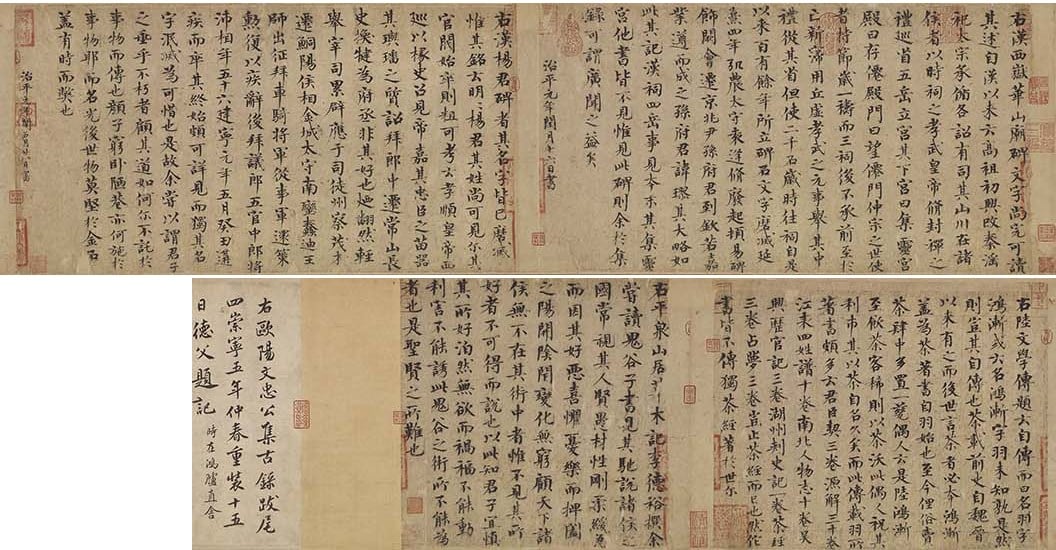 右漢西嶽華山廟碑文字尚完可讀
其述自漢以來云高祖初興改秦淫
祀太宗承循各詔有司其山川在諸
侯者以時祠之孝武皇帝脩封禪之
禮巡省五岳立宮其下宮曰集靈宮
殿曰存僊殿門曰望僊門仲宗之世使
者持節歲一禱而三祠後不承前至於
亡新寖用丘虛孝武之元事舉其中
禮從其省但使二千石歲時往祠自是
以來百有餘年所立碑石文字磨滅延
熹四年弘農太守袁逢脩廢起頓易碑
飾闕會遷京兆尹孫府君到欽若嘉
業遵而成之孫府君諱璆其大略如
此其記漢祠四岳事見本末其集靈
宮他書皆不見惟見此碑則余於集
錄可謂廣聞之益矣
治平元年閏月十六日書
右漢楊君碑者其名字皆已磨滅
惟其銘云明明楊君其姓尚可見尔其
官閥始卒則粗可考云孝順皇帝西
巡以掾史召見帝嘉其忠臣之苗器
其璵璠之質詔拜郎中遷常山長
史換犍為府丞非其好也迺翻然輕
舉宰司累辟應于司徒州察茂才
遷鮦陽侯相金城太守南蠻蠢迪王
師出征拜車騎將軍從事軍還策
勳復以疾辭後拜議郎五官中郎將
沛相年五十六建寧元年五月癸丑遘
疾而卒其終始頗可詳見而獨其名
字泯滅為可惜也是故余嘗以謂君子
之垂乎不朽者顧其道如何尔不託於
事物而傳也顏子窮臥陋巷亦何施於
事物耶而名光後世物莫堅於金石
蓋有時而弊也
治平元年閏五月廿八日書
右陸文學傳題云自傳而曰名羽字
鴻漸或云名鴻漸字羽未知孰是然
則豈其自傳也茶載前史自魏晉
以來有之而後世言茶者必本鴻漸
蓋為茶著書自羽始也至今俚俗賣
茶肆中多置一甆偶人云是陸鴻漸
至飲茶客稀則以茶沃此偶人祝其
利市其以茶自名久矣而此傳載羽所
著書頗多云君臣契三卷源解三十卷
江表四姓譜十卷南北人物志十卷吳
興歷官記三卷湖州刺史記一卷茶經
三卷占夢三卷豈止茶經而已也然佗
書皆不傳獨茶經著於世尔
右平泉山居草木記李德裕撰余
嘗讀鬼谷子書見其馳說諸侯之
國常視其人賢愚材性剛柔緩急
而因其好惡喜懼憂樂而捭闔
之陽開陰闔變化無窮顧天下諸
侯無不在其術中者惟不見其所
好者不可得而說也以此知君子宜慎
其所好泊然無欲而禍福不能動
利害不能誘此鬼谷之術所不能為
者也是聖賢之所難也
右歐陽文忠公集古錄跋尾
四崇寧五年仲春重裝十五
日德父題記 時在鴻臚直舍